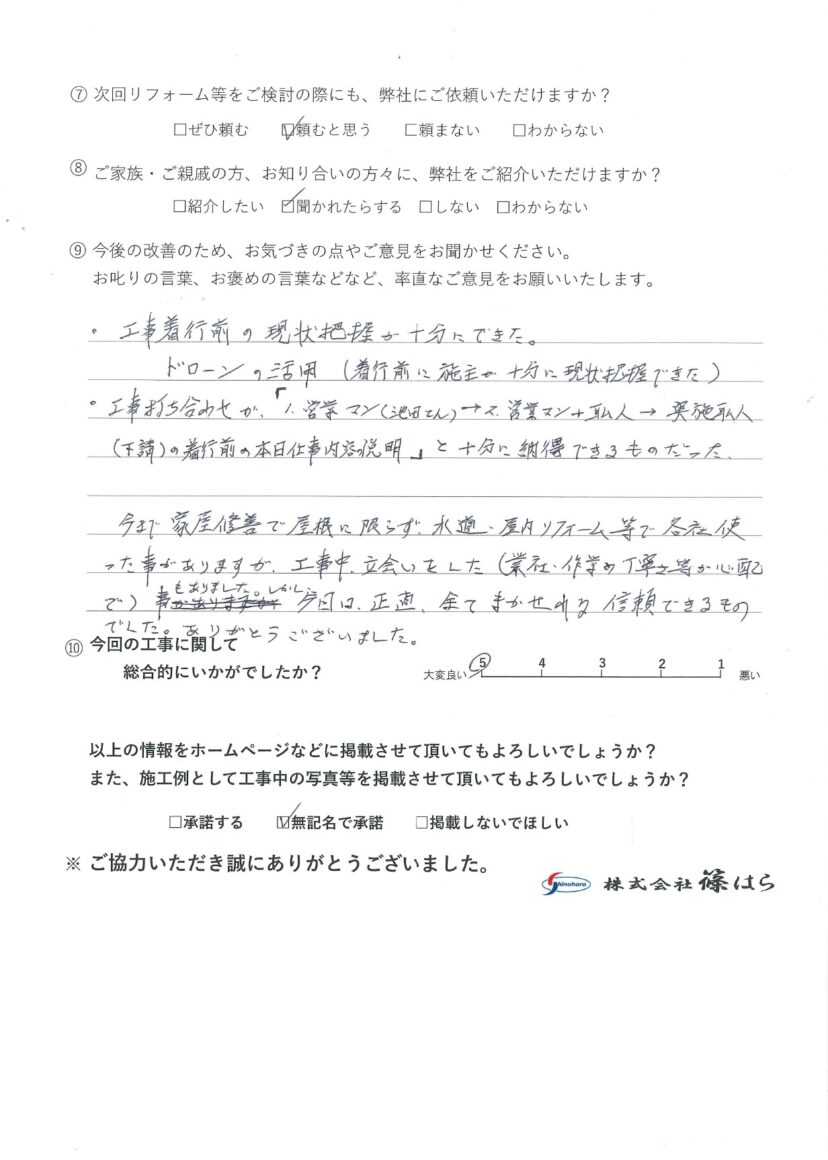 ⑦ 次回リフォーム等をご検討の際にも、弊社にご依頼いただけますか？
□ぜひ頼む ☑頼むと思う □頼まない □わからない
⑧ ご家族・ご親戚の方、お知り合いの方々に、弊社をご紹介いただけますか？
□紹介したい ☑聞かれたらする □しない □わからない
⑨ 今後の改善のため、お気づきの点やご意見をお聞かせください。
お叱りの言葉、お褒めの言葉などなど、率直なご意見をお願いいたします。
・工事着行前の現状把握が十分にできた。
ドローンの活用（着行前に施主が十分に現状把握できた）
・工事打ち合わせが、「1. 営業マン（池田さん）→2. 営業マン+職人→ 実施職人
（下請）の着行前の本日仕事内容の説明」と十分に納得できるものだった。
今まで家屋修善で屋根に限らず、水道・屋内リフォーム等で各社使
った事がありますが、工事中、立会いをした（業社・作業の丁寧さ等が心配
で）事もありました。しかし、今回は、正直、全てまかせれる信頼できるもの
でした。ありがとうございました。
⑩ 今回の工事に関して
総合的にいかがでしたか？
大変良い 5 4 3 2 1 悪い
以上の情報をホームページなどに掲載させて頂いてもよろしいでしょうか？
また、施工例として工事中の写真等を掲載させて頂いてもよろしいでしょうか？
□承諾する ☑無記名で承諾 □掲載しないでほしい
※ ご協力いただき誠にありがとうございました。
Shinohara 株式会社 篠はら